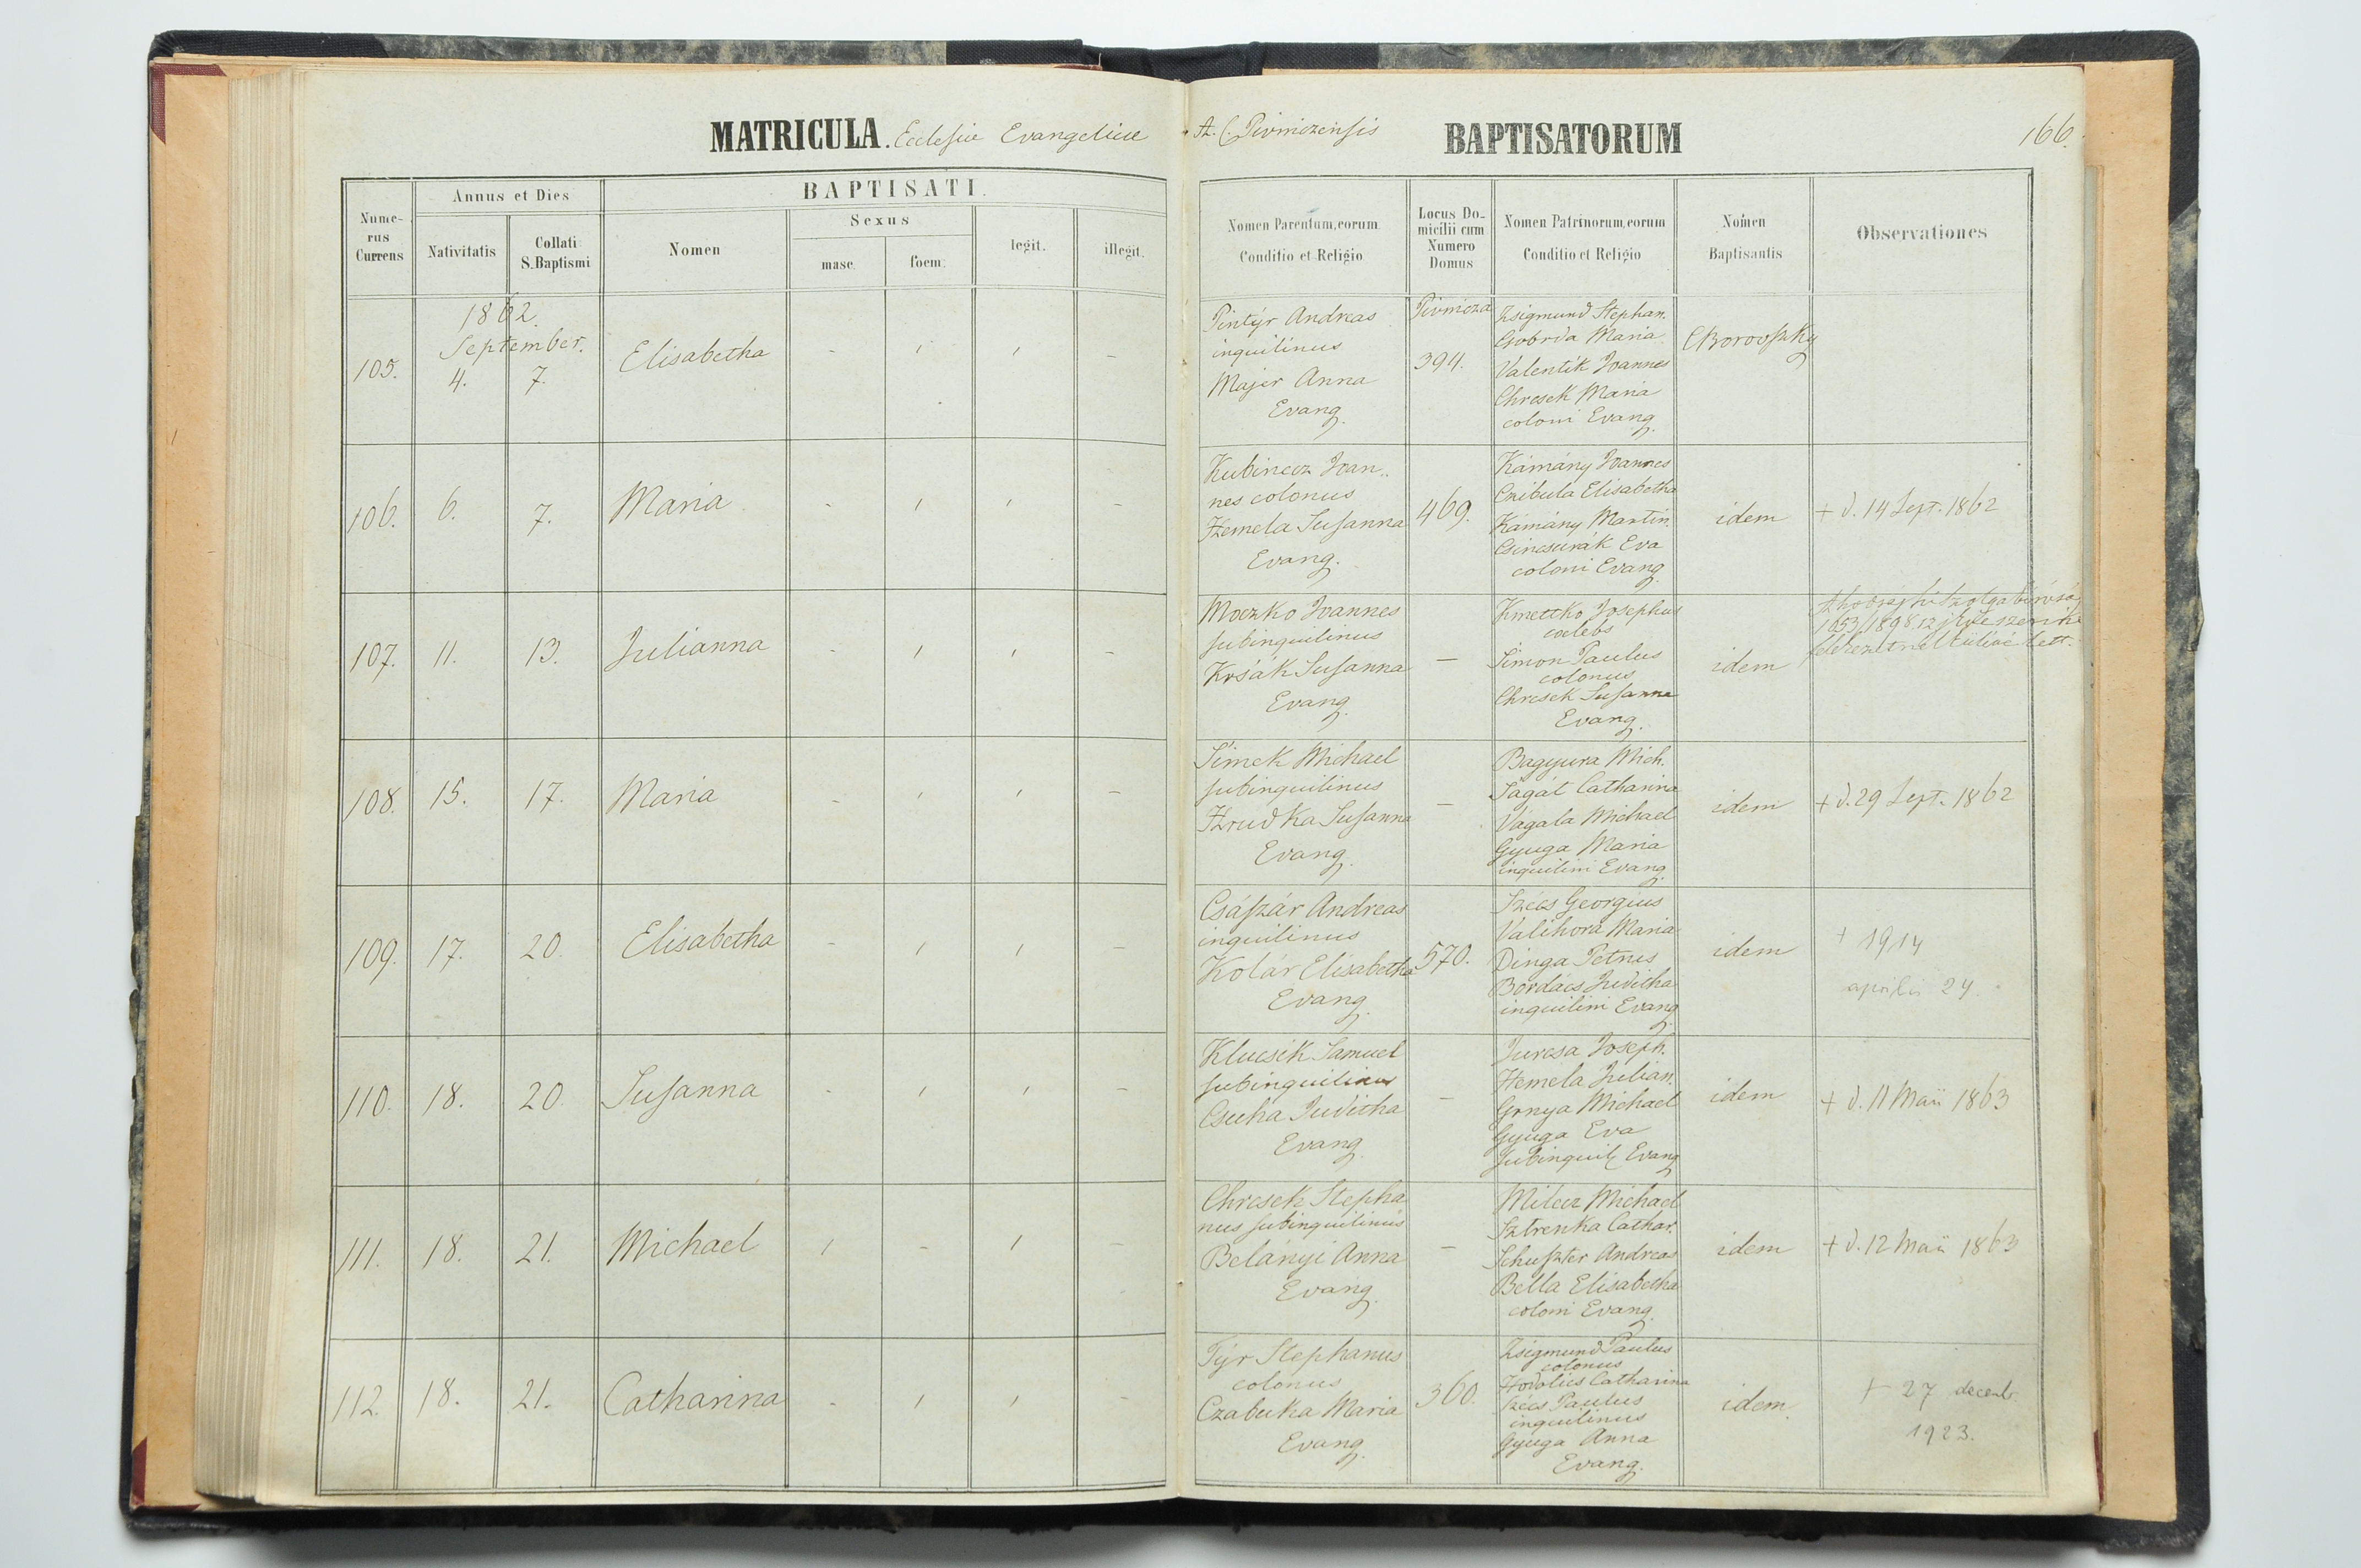 MATRICULA. Ecclesiae Evangelicae A. C. Pivniczensis BAPTISATORUM 166.
Numerus Currens
Annus et Dies
Nativitatis
Collati S. Baptismi
BAPTISATI.
Nomen
Sexus
masc.
foem.
legit.
illegit.
Nomen Parentum, eorum
Conditio et Religio
Locus Do-
micilii cum
Numero
Domus
Nomen Patrinorum, eorum
Conditio et Religio
Nomen
Baptisantis
Observationes
1862.
September.
105. 4. 7. Elisabetha - 1 1 -
Pintýr Andreas
inquilinus
Majer Anna
Evang.
Pivnicza
394.
Zsigmund Stephan.
Gsobrda Maria
Valentik Joannes
Chrcsek Maria
coloni Evang.
CBorovszky
106. 6. 7. Maria - 1 1 -
Kubinecz Joan-
nes colonus
Hemela Susanna
Evang.
469.
Kámány Joannes
Czibula Elisabetha
Kámány Martin.
Csincsurák Eva
coloni Evang.
idem
+ d. 14 Sept. 1862
107. 11. 13. Julianna - 1 1 -
Moczko Joannes
subinquilinus
Kršák Susanna
Evang.
-
Kmettko Josephus
coelebs
Simon Paulus
colonus
Chrcsek Susanna
Evang.
idem
1053/1898
lett.
108. 15. 17. Maria - 1 1 -
Šimek Michael
subinquilinus
Hrudka Susanna
Evang.
-
Bagyura Mich.
Šagát Catharina
Vagala Michael
Gyuga Maria
inquilini Evang.
idem
+ d. 29 Sept. 1862
109. 17. 20. Elisabetha - 1 1 -
Császár Andreas
inquilinus
Kolár Elisabetha
Evang.
570.
Szécs Georgius
Valihora Maria
Dinga Petrus
Bordács Juditha
inquilini Evang.
idem
+ 1914
aprilis 24.
110. 18. 20. Susanna - 1 1 -
Klucsik Samuel
subinquilinus
Csuha Juditha
Evang.
-
Jurcsa Joseph.
Hemela Julian.
Grnya Michael
Gyuga Eva
subinquil. Evang.
idem
+ d. 11 Maii 1863
111. 18. 21. Michael 1 - 1 -
Chrcsek Stepha
nus subinquilinus
Belányi Anna
Evang.
-
Milecz Michael
Sztrenka Cathar.
Schuszter Andreas
Bella Elisabetha
coloni Evang.
idem
+ d. 12 Maii 1863
112. 18. 21. Catharina - 1 1 -
Týr Stephanus
colonus
Czabuka Maria
Evang.
360.
Zsigmund Paulus
colonus
Hodolics Catharina
Szécs Paulus
inquilinus
Gyuga Anna
Evang.
idem
+ 27 decemb.
1923.